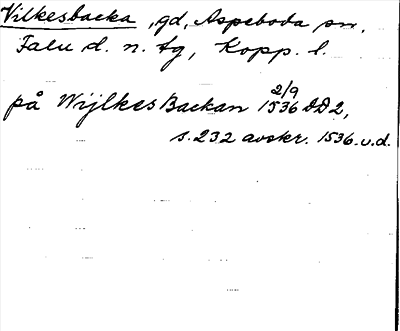 Vilkesbacka, gd, Aspeboda sn,
Falu d. n. tg, Kopp. l.
på Wijlkes Backan 2/9 1536 DD2,
s. 232 avskr. 1536 u.d.